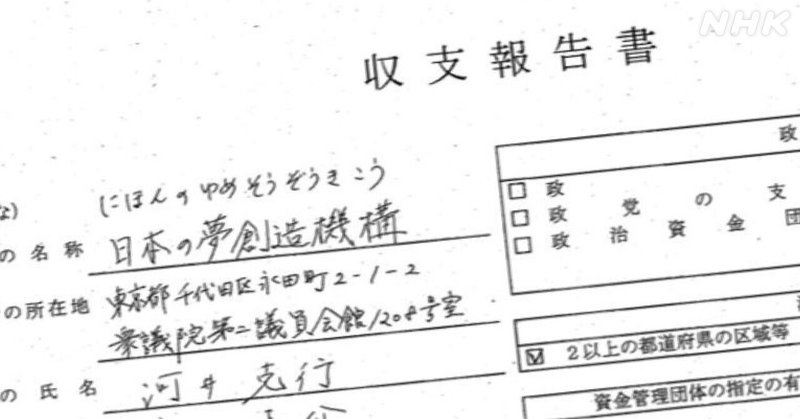 NHK
収支報告書
な)
にほんのゆめそうぞうきこう
の名称 日本の夢創造機構
の所在地 東京都千代田区永田町2-1-2
衆議院第二議員会館1208号室
の氏名 河井克行
政
□ 政党の支
□ 政
□ 政治資金団
☑ 2以上の都道府県の区域等
資金管理団体の指定の有